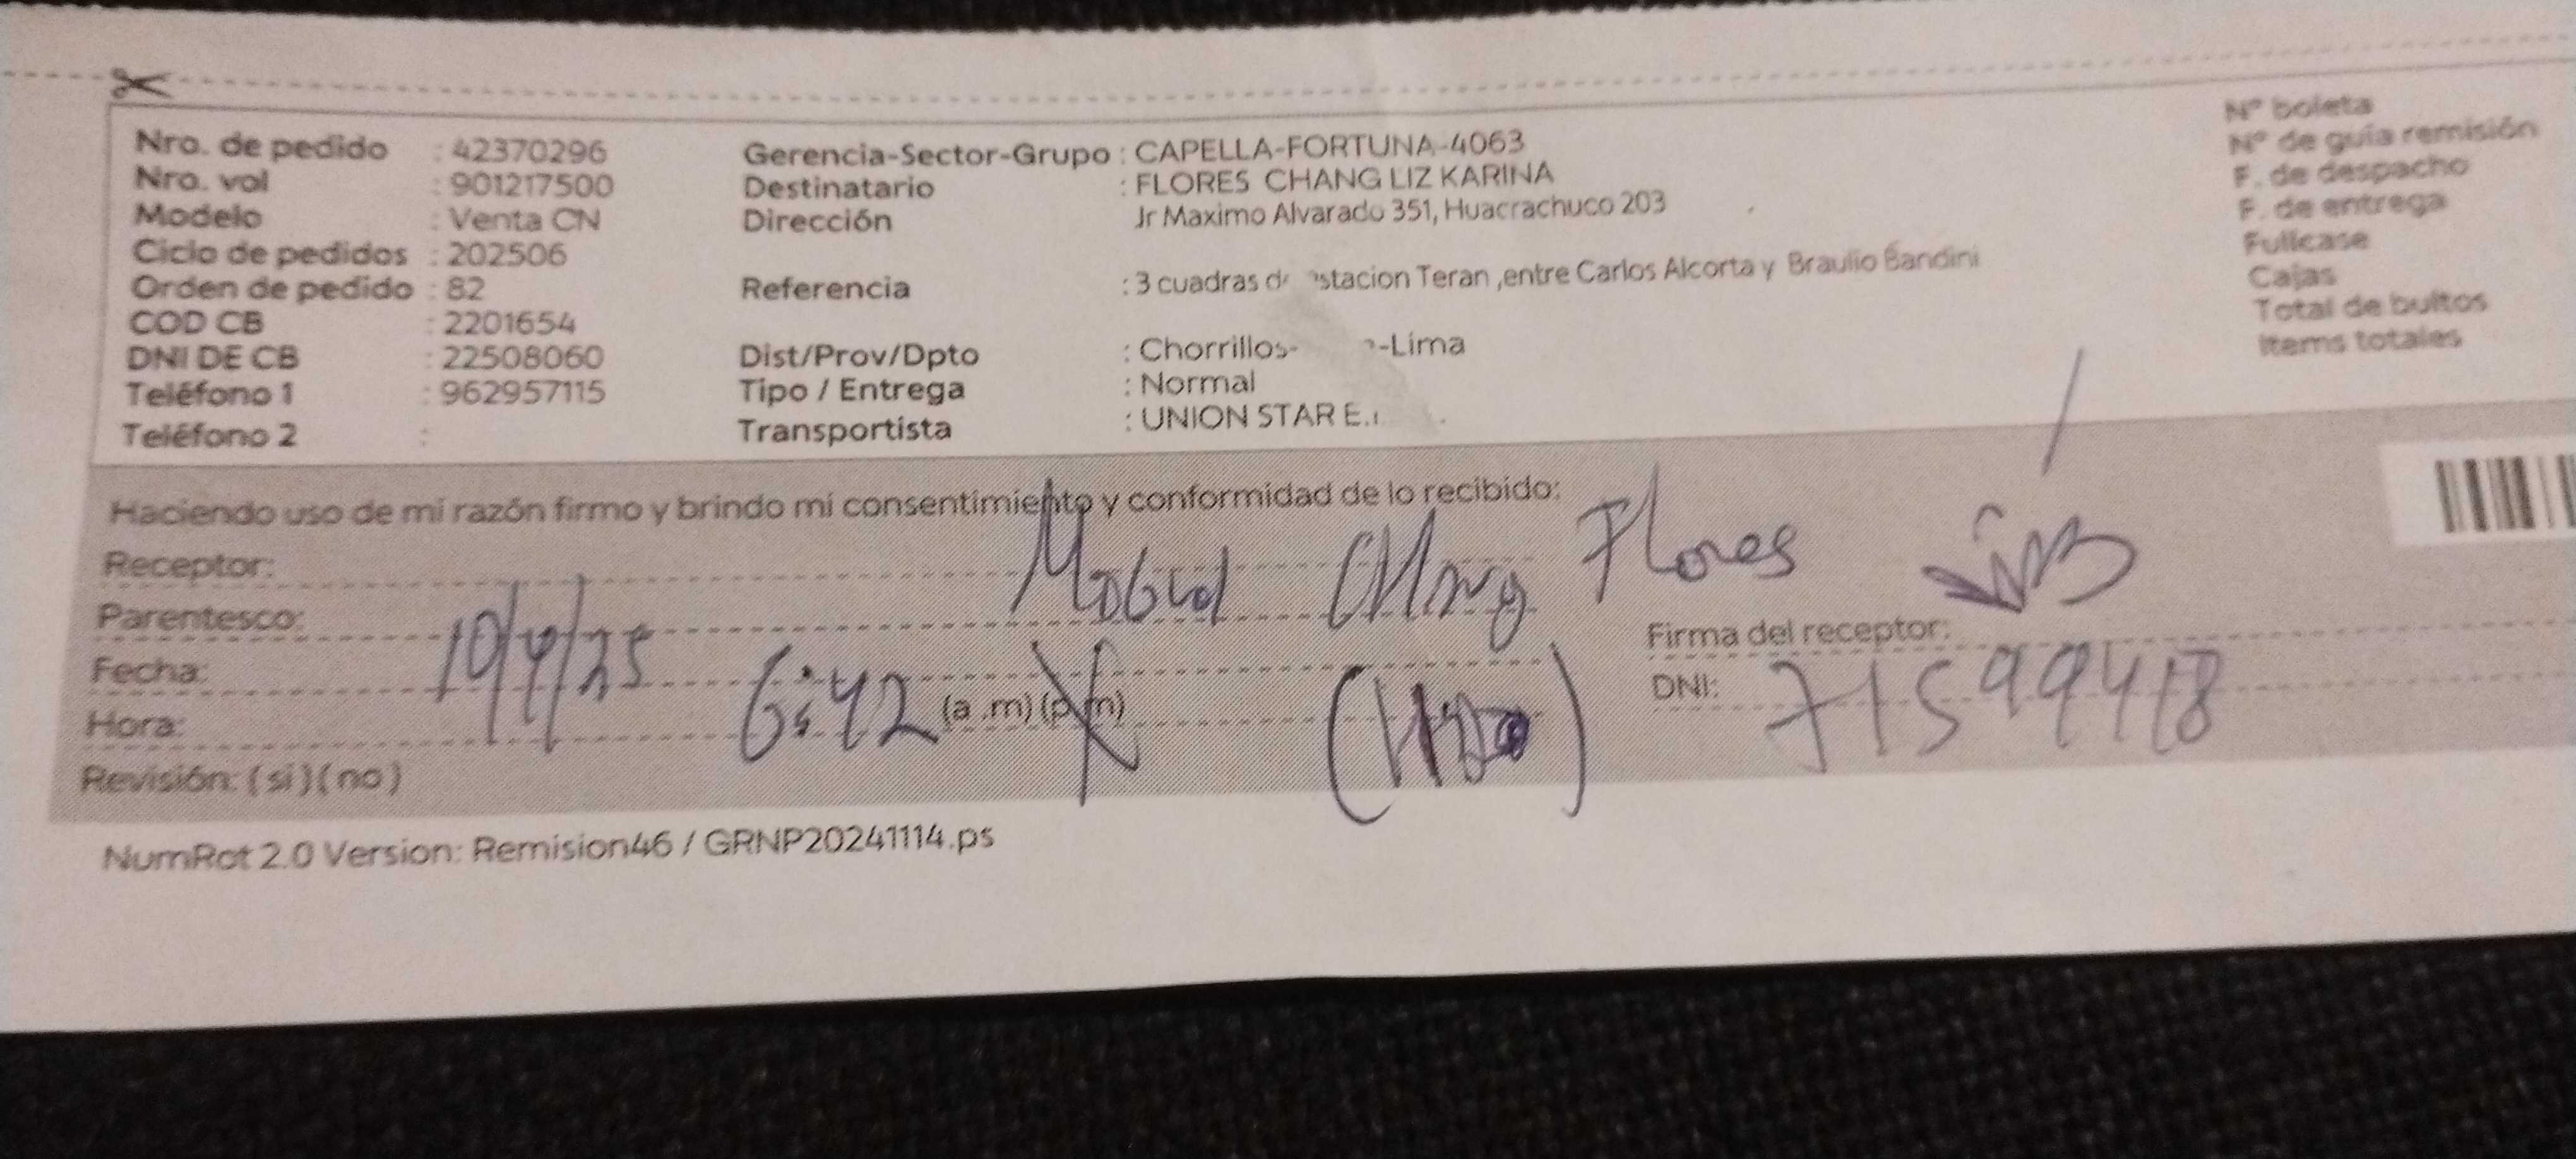 Nro. de pedido : 42370296
Nro. vol : 901217500
Modelo : Venta CN
Ciclo de pedidos : 202506
Orden de pedido : 82
COD CB : 2201654
DNI DE CB : 22508060
Teléfono 1 : 962957115
Teléfono 2 :
Gerencia-Sector-Grupo : CAPELLA-FORTUNA-4063
Destinatario : FLORES CHANG LIZ KARINA
Dirección Jr Maximo Alvarado 351, Huacrachuco 203
Referencia : 3 cuadras Teran ,entre Carlos Alcorta y Braulio Bandini
Dist/Prov/Dpto : Chorrillos- -Lima
Tipo / Entrega : Normal
Transportista : UNION STAR
N° boleta
N° de guía remisión
F. de despacho
F. de entrega
Fullcase
Cajas
Total de bultos
Items totales
Haciendo uso de mi razón firmo y brindo mi consentimiento y conformidad de lo recibido:
Receptor: Flores
Parentesco:
Fecha: 10/4/25
Hora: 6:42 (a .m) (p.m)
Revisión: (si) (no)
Firma del receptor:
DNI:
NumRot 2.0 Version: Remision46 / GRNP20241114.ps